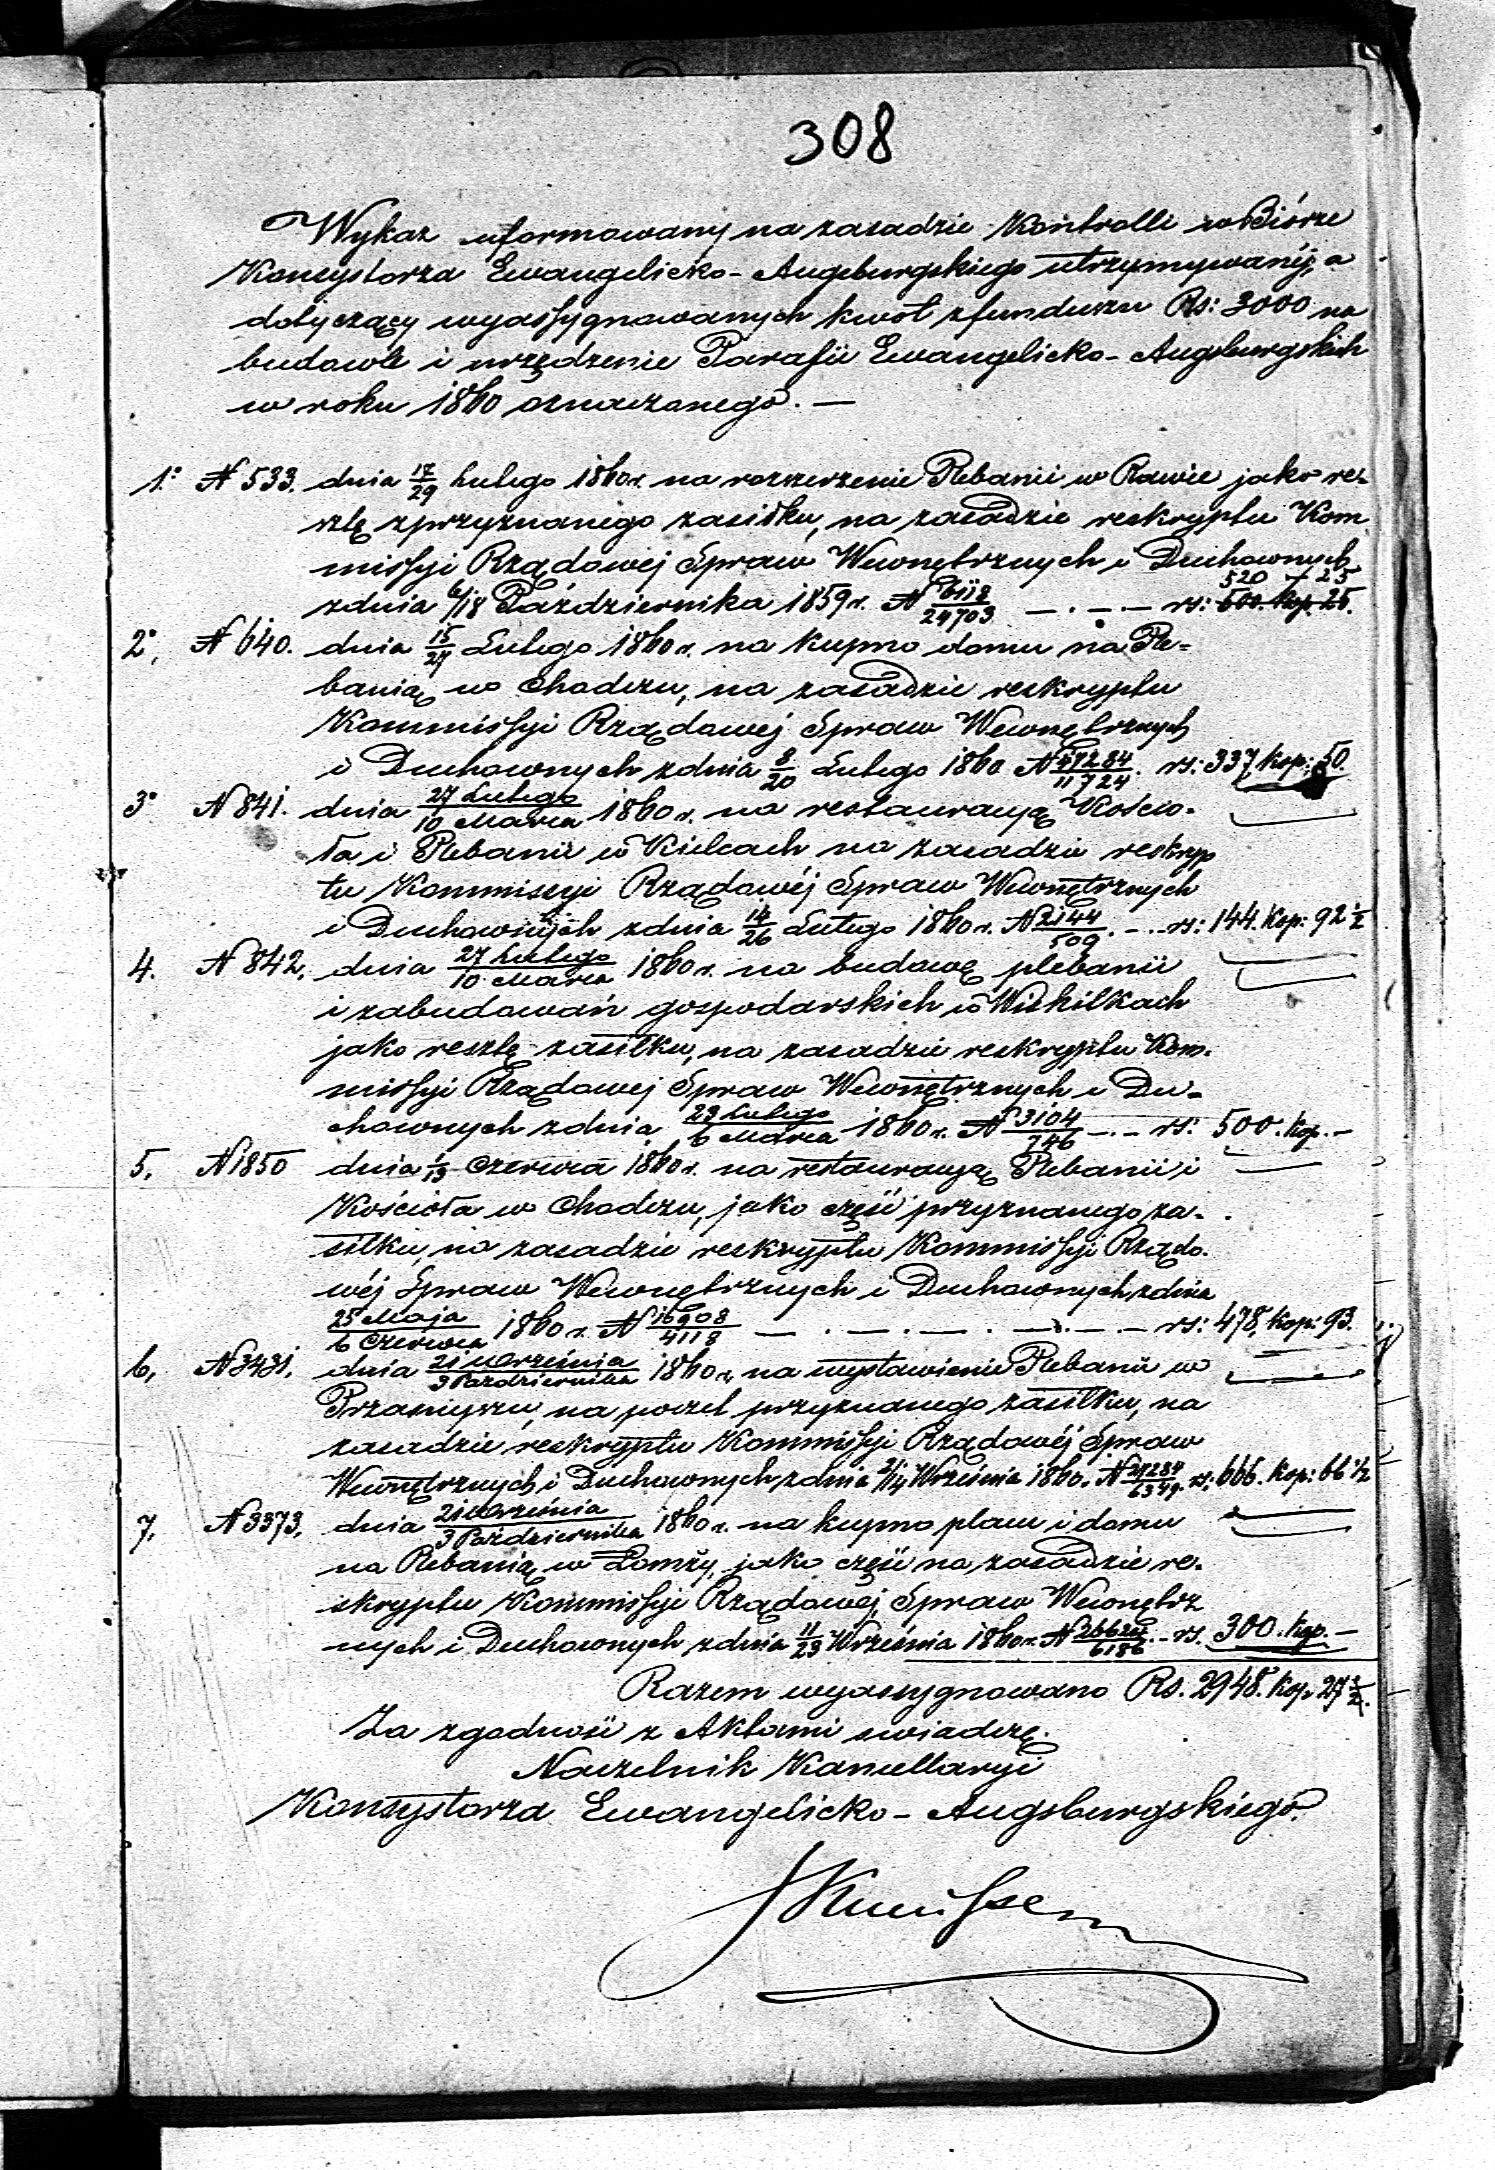 308
Wykaz uformowany na zasadzie Kontrolli w Biórze
Konsystorza Ewangelicko-Augsburgskiego utrzymywanéj, a
dotyczący wyassygnowanych kwot z funduszu Rs: 3000 na
budowle i urządzenie Parafii Ewangelicko-Augsburgskich
w roku 1860 oznaczonego. —
1.° N 533. dnia 17/29 Lutego 1860 r. na rozszerzenie Plebanii w Rawie jako re-
sztę z przyznanego zasiłku, na zasadzie reskryptu Kom
missyi Rządowéj Spraw Wewnętrznych i Duchownych
520 + 25
z dnia 6/18 Października 1859 r. N /24703 — . — . — rs: 500. Kop. 25.
2°, N 640. dnia 15/27 Lutego 1860 r. na kupno domu na Ple-
banią w Chodczu, na zasadzie reskryptu
Kommissyi Rządowej Spraw Wewnętrznych
i Duchownych z dnia 8/20 Lutego 1860 N /11724. rs: 337 Kop: 50.
3° N 841. dnia 27 Lutego/10 Marca 1860 r. na restauracyą Kościo-
ła i Plebanii w Kielcach na zasadzie reskryp
tu Kommissyi Rządowéj Spraw Wewnętrznych
i Duchownych z dnia 14/26 Lutego 1860 r. N 2144/509. - . . rs: 144. Kop: 92 1/2
4. N 842, dnia 27 Lutego/10 Marca 1860 r. na budowę plebanii
i zabudowań gospodarskich w Wiskitkach
jako resztę zasiłku, na zasadzie reskryptu Kom-
missyi Rządowej Spraw Wewnętrznych i Du-
chownych z dnia 23 Lutego/6 Marca 1860 r. N 3104/746 - . - rs: 500. Kop. -
5, N 1850 dnia 1/13 Czerwca 1860 r. na restauracyą Plebanii i
Kościoła w Chodczu, jako część przyznanego za-
siłku, na zasadzie reskryptu Kommissyi Rządo-
wéj Spraw Wewnętrznych i Duchownych, z dnia
25 Maja/6 Czerwca 1860 r. N 16908/4118 — . — . — . — . — rs: 478, Kop: 93.
6, N 3431. dnia 21 Września/3 Października 1860 r, na wystawienie Plebanii w
Przasnyszu, na poczet przyznanego zasiłku, na
zasadzie reskryptu Kommissyi Rządowéj Spraw
Wewnętrznych i Duchownych z dnia 2/14 Września 1860. N /6349. rs: 666. Kop: 66 1/2
7, N 3373, dnia 21 Września/3 Października 1860 r. na kupno placu i domu
na Plebanią w Łomży, jako część na zasadzie re-
skryptu Kommissyi Rządowéj Spraw Wewnętrz
nych i Duchownych z dnia 11/23 Września 1860 r. N /6186. - rs. 300. Kop. -
Razem wyassygnowano Rs. 2948. Kop. 27 1/2.
Za zgodność z Aktami świadczę.
Naczelnik Kancellaryi
Konsystorza Ewangelicko-Augsburgskiego.